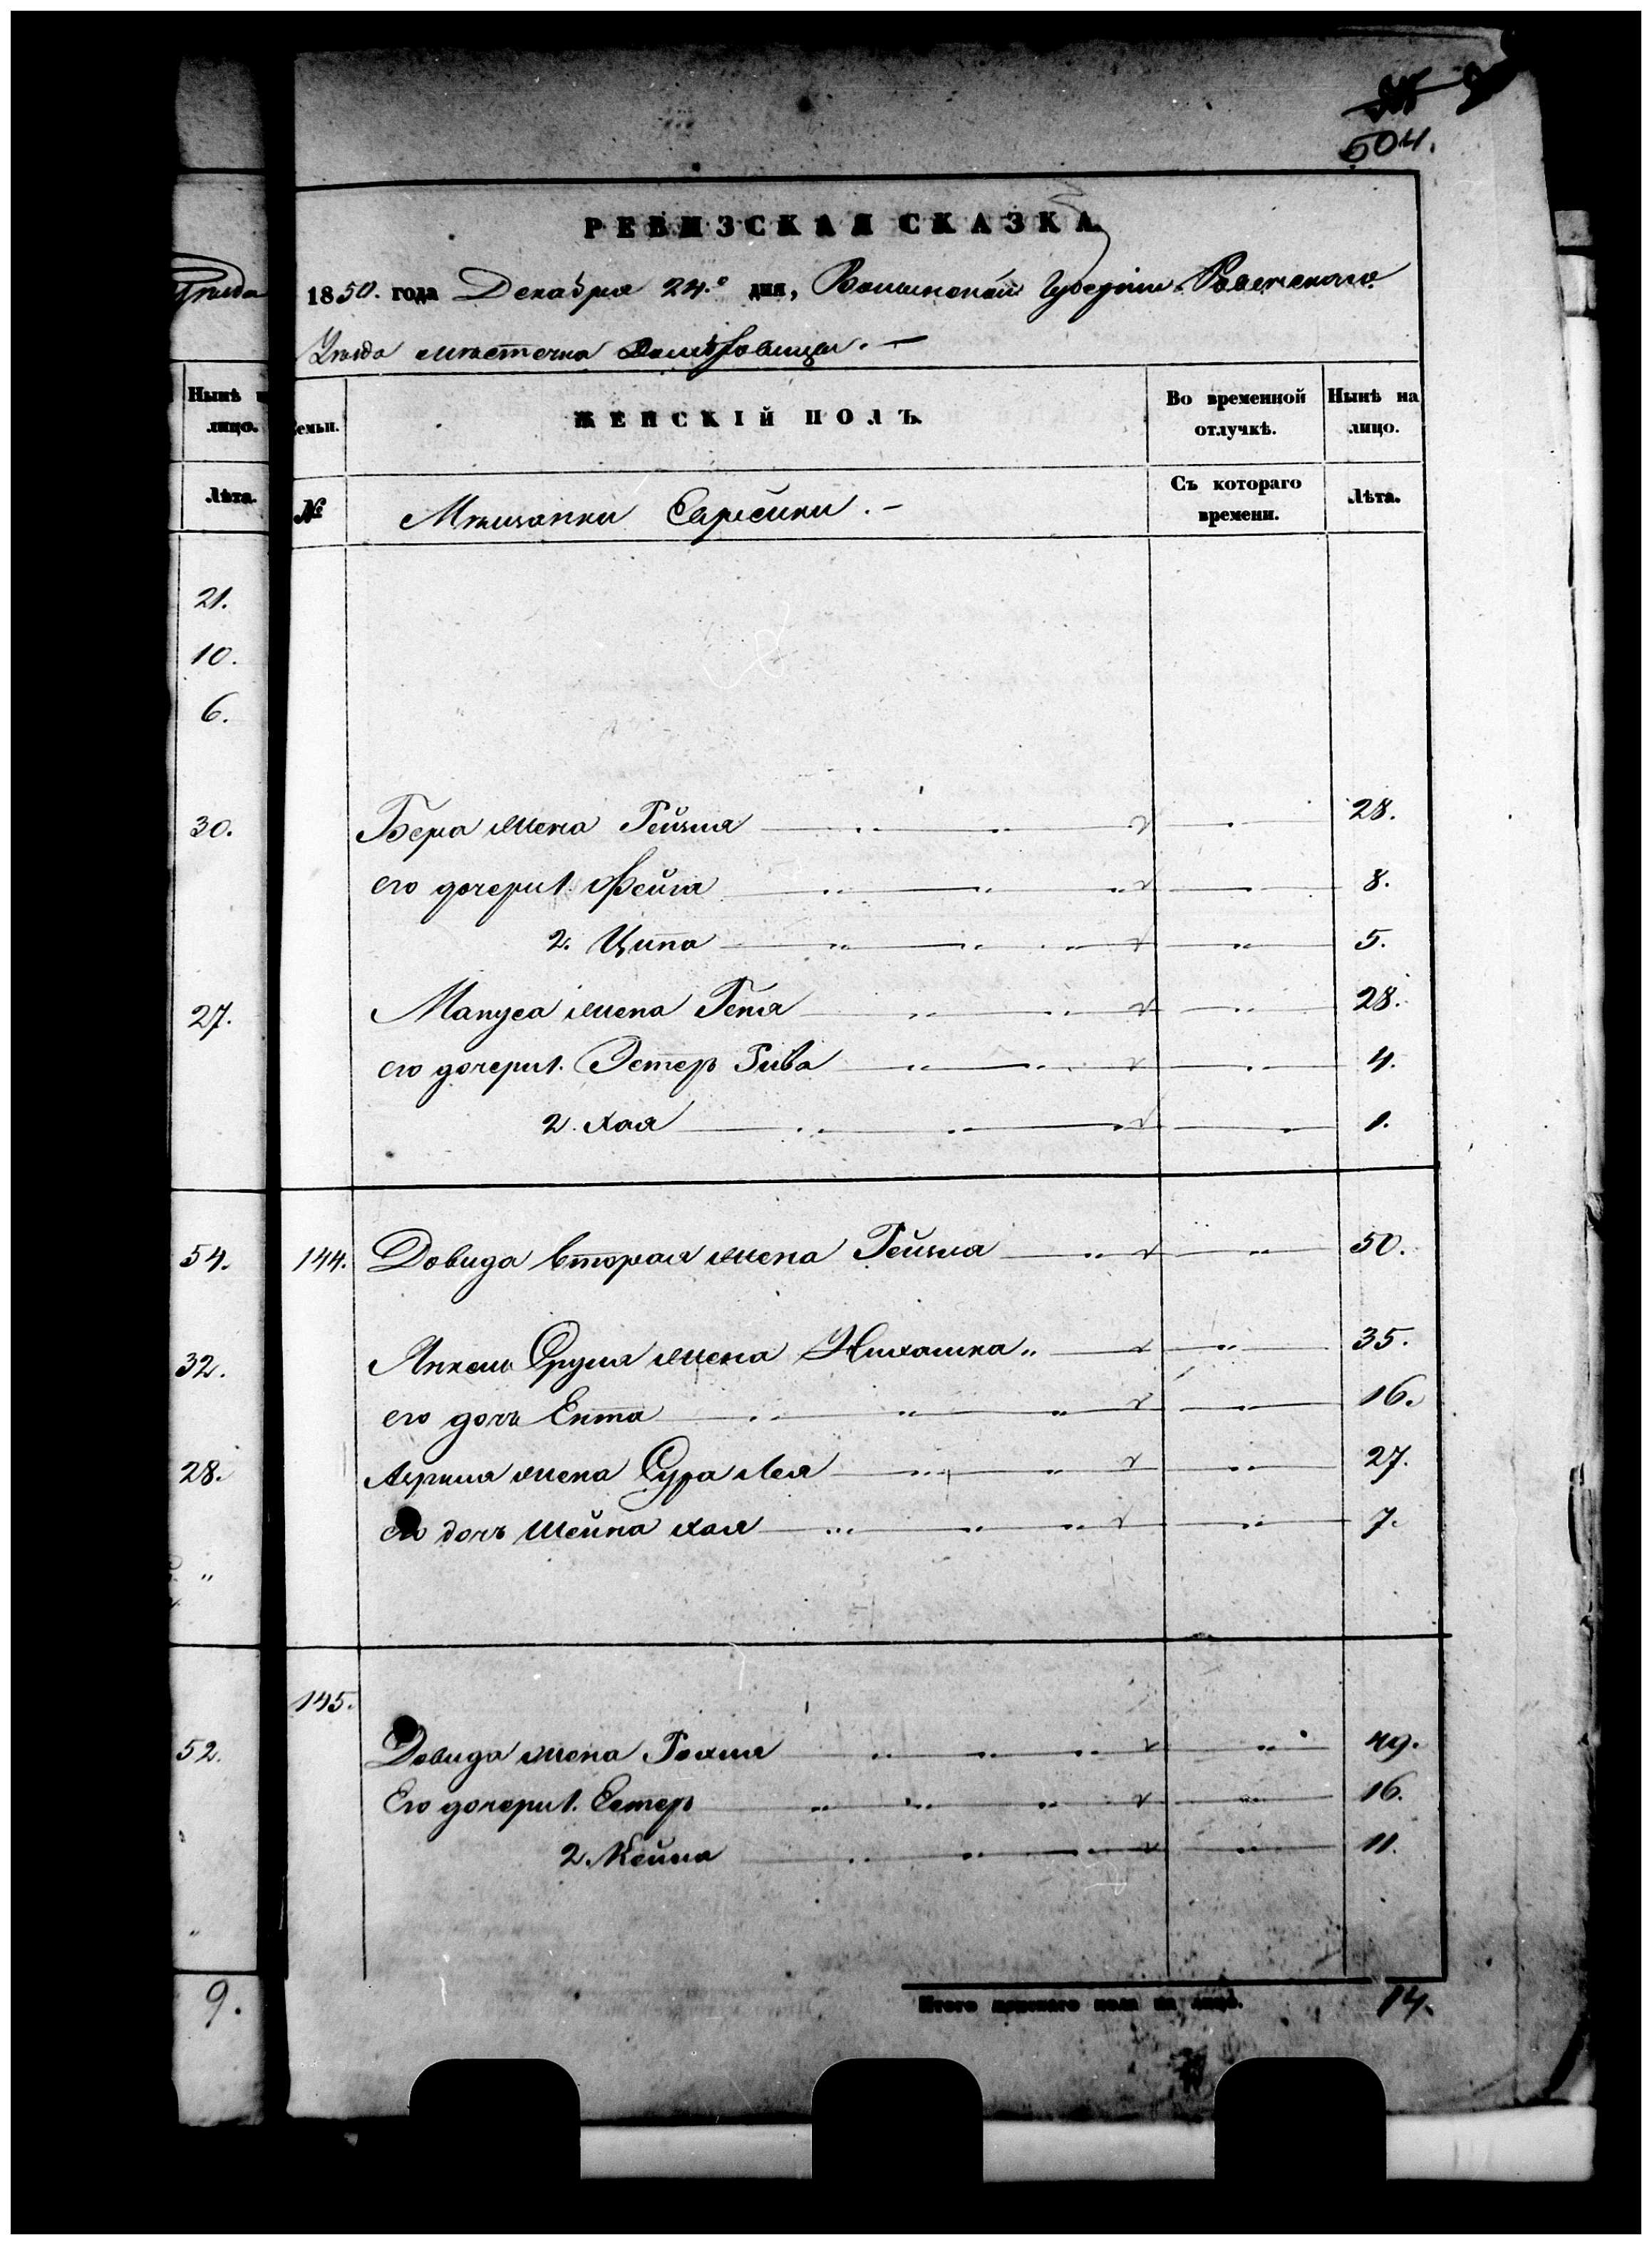 504.
РЕВИЗСКАЯ СКАЗКА
1850. года Декабря 24.го дня, Волынской Губерніи Ровенскаго
Уѣзда мѣстечка Домбровицы. —
Нынѣ
лицо.
Лѣта.
21.
10.
6.
30.
27.
54.
32.
28.
"
52.
"
9.
Семьи.
ЖЕНСКІЙ ПОЛЪ.
Во временной отлучкѣ.
Нынѣ на лицо.
№
Мѣщанки Еврейки. —
Съ котораго времени.
Лѣта.
Бера жена Рейзля 28.
его дочери 1. Фейга 8.
2. Ципа 5.
Мануса жена Геня 28.
его дочери 1. Эстеръ Рива 4.
2. Хая 1.
144. Довида вторая жена Рейзля 50.
Янкель Сруля жена 35.
его дочь Ента 16.
жена Сура Лея 27.
его дочь Шейна Хая 7.
145.
Довида жена Рохля 49.
Его дочери 1. Естеръ 16.
2. Кейла 11.
Итого женскаго пола на лицо. 14.